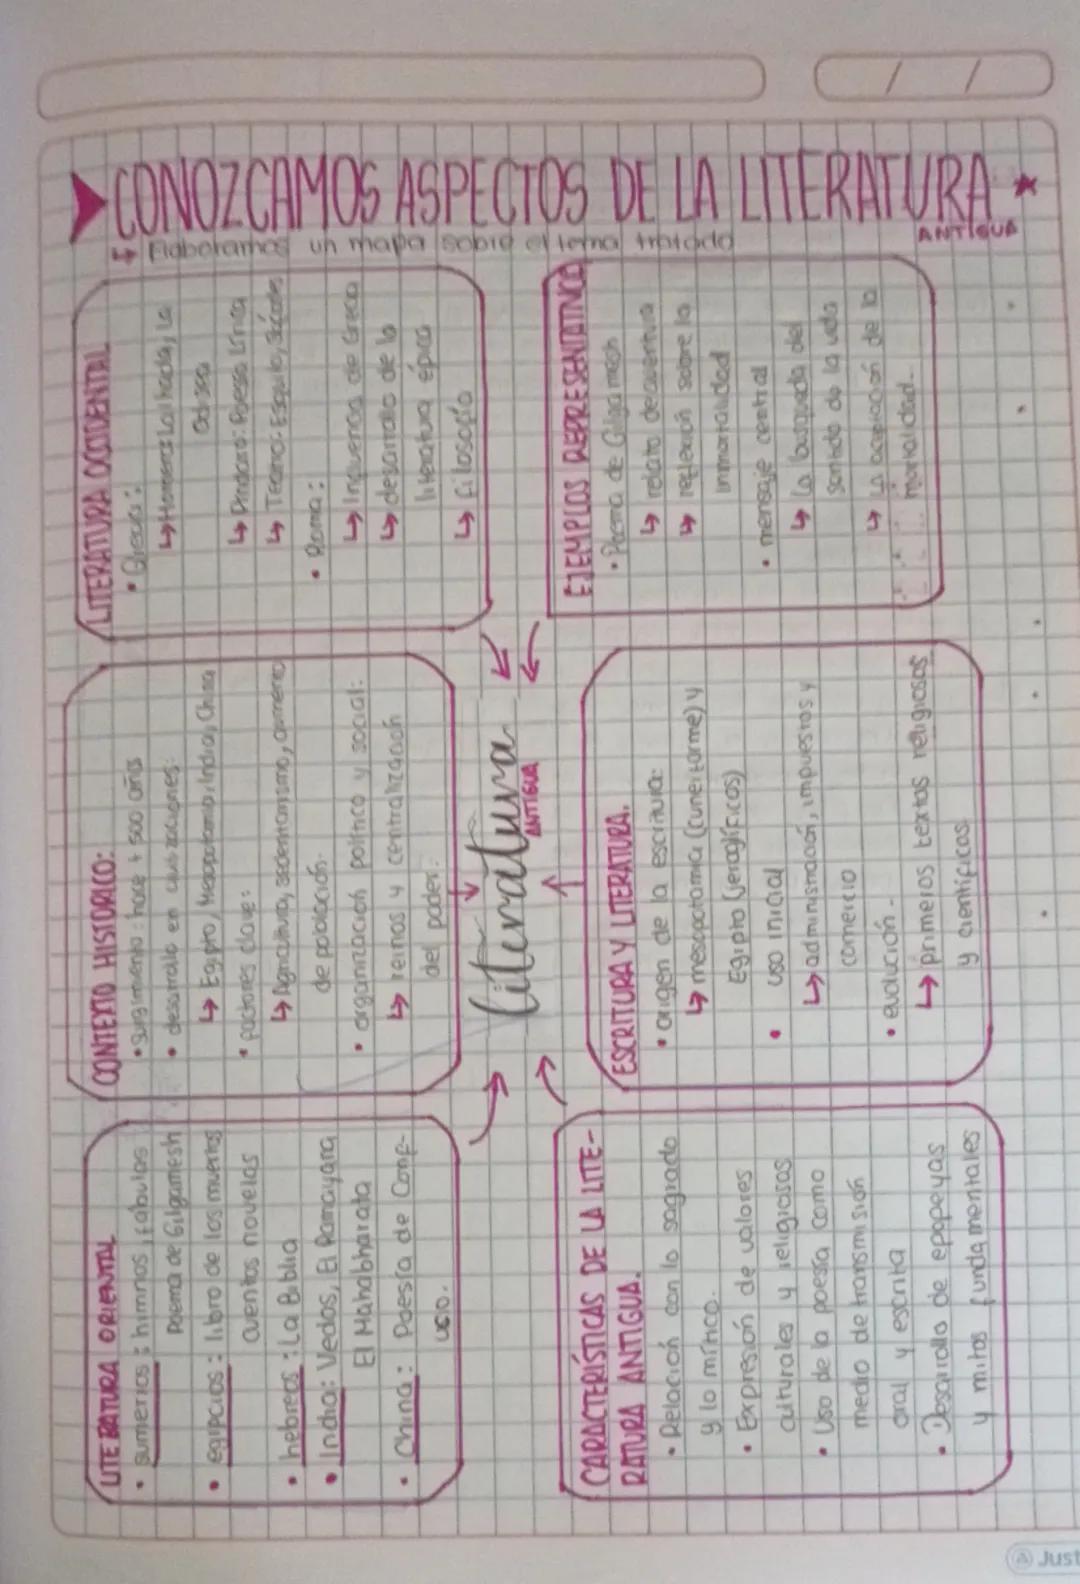 CONOZCAMOS ASPECTOS DE LA LITERATURA
ANTIGUA
Elaboramos un mapa sobre el tema tratado
LITERATURA ORIENTAL
• sumerios: himnos, fabulas
Poema de Gilgamesh
• egipcios: libro de los muertos
cuentos novelas
• hebreos: La Biblia
• India: Vedas, El Ramayana
El Mahabharata
• China: Poesía de Conf-
ucio.
CONTEXTO HISTORICO:
• surgimiento: hace + 500 años
• desarrollo en civilizaciones:
↳ Egipto, Mesopotamia, India, China
• factores clave:
↳ Agricultura, sedentarismo, aumento
de poblacion.
• organización político y social:
↳ reinos y centralización
del poder.
LITERATURA OCCIDENTAL
• Grecia:
↳ Homero: La Ilíada, La
Odisea
↳ Píndaro: Poesía Lírica
↳ Teatro: Esquilo, Sófocles
• Roma:
↳ Influencia de Grecia
↳ desarrollo de la
literatura épica
↳ filosofía
literatura
ANTIGUA
CARACTERÍSTICAS DE LA LITE-
RATURA ANTIGUA.
• Relación con lo sagrado
y lo mítico.
• Expresión de valores
culturales y religiosos
• Uso de la poesía como
medio de transmisión
oral y escrita
• Desarrollo de epopeyas
y mitos fundamentales
ESCRITURA Y LITERATURA.
• origen de la escritura:
↳ mesopotamia (cuneiforme) y
Egipto (jeroglíficos)
• uso inicial
↳ administración, impuestos y
comercio
• evolución-
↳ primeros textos religiosos
y científicos.
EJEMPLOS REPRESENTATIVOS
• Poema de Gilgamesh
↳ relato de aventura
↳ reflexión sobre la
inmortalidad
• mensaje central
↳ La busqueda del
sentido de la vida
↳ La aceptación de la
mortalidad.
Just